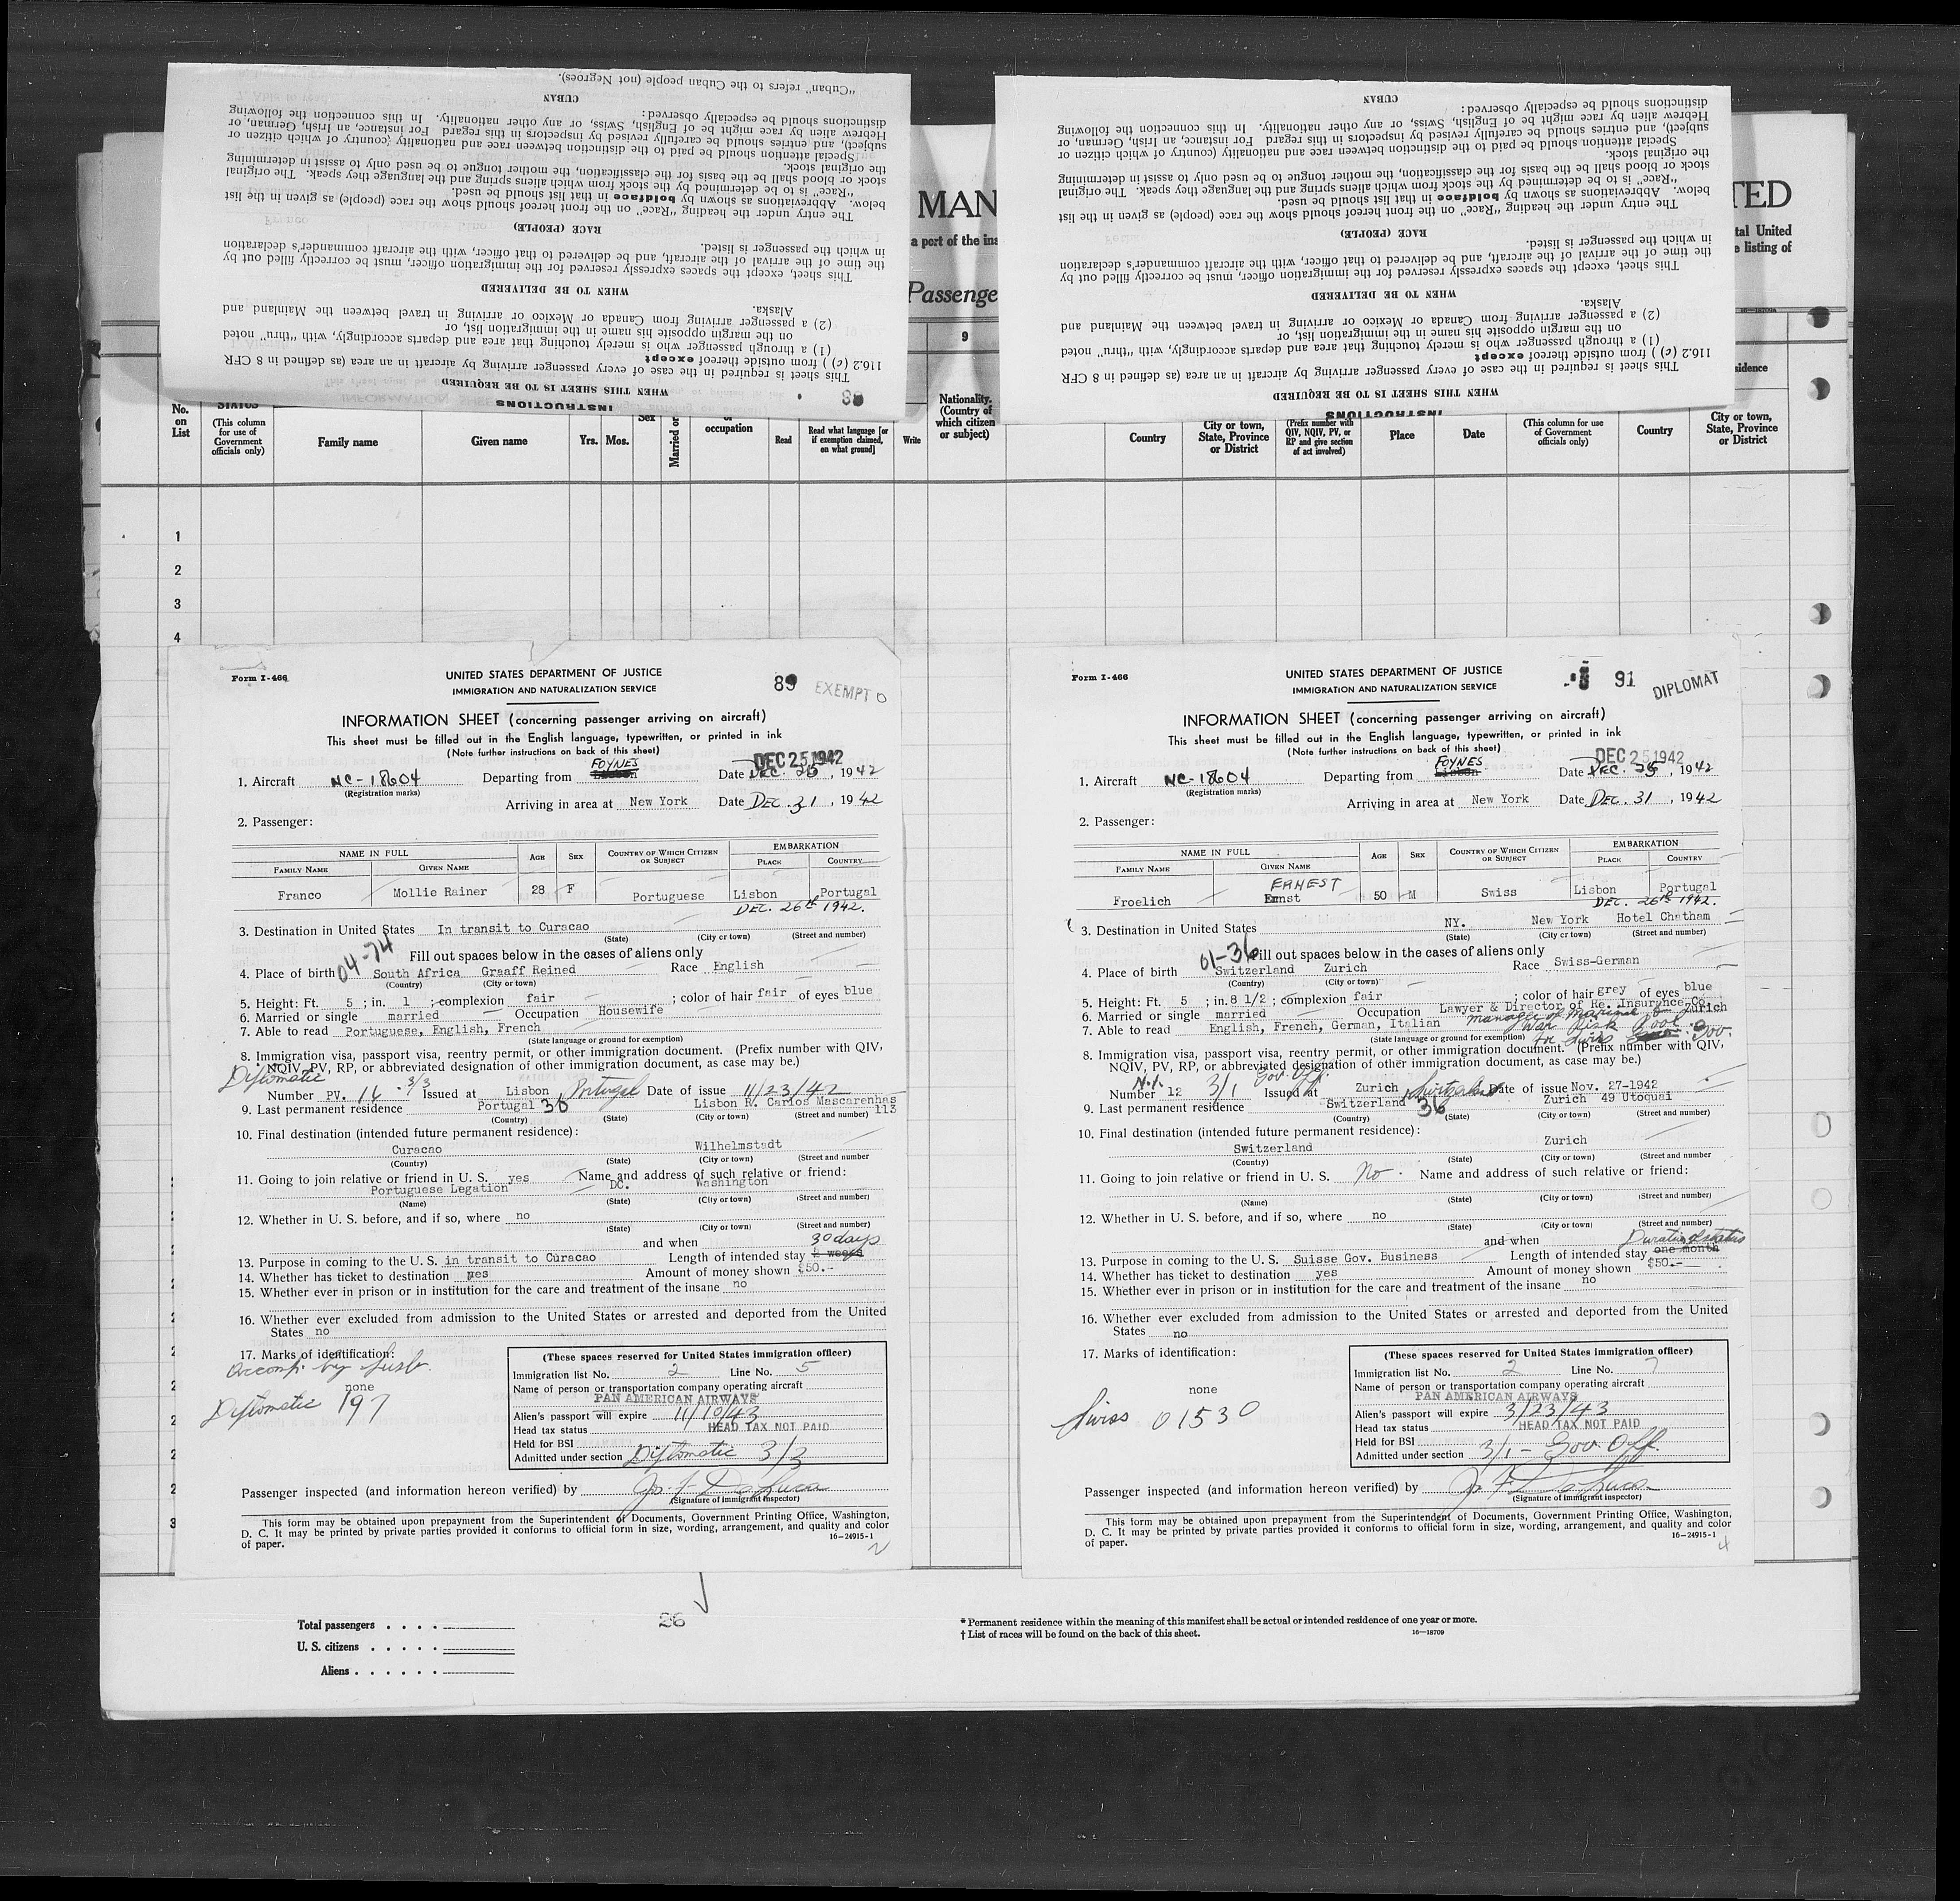 "Cuban" refers to the Cuban people (not Negroes).
CUBAN
distinctions should be especially observed:
Hebrew alien by race might be of English, Swiss, or any other nationality. In this connection the following
subject), and entries should be carefully revised by inspectors in this regard For instance, an Irish, German, or
Special attention should be paid to the distinction between race and nationality (country of which citizen or
the original stock.
stock or blood shall be the basis for the classification, the mother tongue to be used only to assist in determining
"Race" is to be determined by the stock from which aliens spring and the language they speak. The original
below. Abbreviations as shown by boldface in that list should be used.
The entry under the heading "Race" on the front hereof should show the race (people) as given in the list
RACE (PEOPLE)
in which the passenger is listed.
the time of the arrival of the aircraft, and be delivered to that officer, with the aircraft commander's declaration
This sheet, except the spaces expressly reserved for the immigration officer, must be correctly filled out by
WHEN TO BE DELIVERED
Alaska.
(2) a passenger arriving from Canada or Mexico or arriving in travel between the Mainland and
on the margin opposite his name in the immigration list, or
(1) a through passenger who is merely touching that area and departs accordingly, with "thru" noted
116.2 (c) ) from outside thereof except
This sheet is required in the case of every passenger arriving by aircraft in an area (as defined in 8 CFR
WHEN THIS SHEET IS TO BE REQUIRED
INSTRUCTIONS
CUBAN
distinctions should be especially observed:
Hebrew alien by race might be of English, Swiss, or any other nationality. In this connection the following
subject), and entries should be carefully revised by inspectors in this regard For instance, an Irish, German, or
Special attention should be paid to the distinction between race and nationality (country of which citizen or
the original stock.
stock or blood shall be the basis for the classification, the mother tongue to be used only to assist in determining
"Race" is to be determined by the stock from which aliens spring and the language they speak. The original
below. Abbreviations as shown by boldface in that list should be used.
The entry under the heading "Race" on the front hereof should show the race (people) as given in the list
RACE (PEOPLE)
in which the passenger is listed.
the time of the arrival of the aircraft, and be delivered to that officer, with the aircraft commander's declaration
This sheet, except the spaces expressly reserved for the immigration officer, must be correctly filled out by
WHEN TO BE DELIVERED
Alaska.
(2) a passenger arriving from Canada or Mexico or arriving in travel between the Mainland and
on the margin opposite his name in the immigration list, or
(1) a through passenger who is merely touching that area and departs accordingly, with "thru" noted
116.2 (c) ) from outside thereof except
This sheet is required in the case of every passenger arriving by aircraft in an area (as defined in 8 CFR
WHEN THIS SHEET IS TO BE REQUIRED
INSTRUCTIONS
MAN
TED
a part of the ins
tal United
e listing of
Passenge
9
sidence
No. on List
STATUS (This column for use of Government officials only)
Family name
Given name
Yrs. Mos.
Sex
Married or
occupation
Read
Read what language [or if exemption claimed, on what ground]
Write
Nationality. (Country of which citizen or subject)
Country
City or town, State, Province or District
(Prefix number with QIV, NQIV, PV, or RP and give section of act involved)
Place
Date
(This column for use of Government officials only)
Country
City or town, State, Province or District
1
2
3
4
Form I-466
UNITED STATES DEPARTMENT OF JUSTICE
IMMIGRATION AND NATURALIZATION SERVICE
89 EXEMPT
INFORMATION SHEET (concerning passenger arriving on aircraft)
This sheet must be filled out in the English language, typewritten, or printed in ink
(Note further instructions on back of this sheet)
DEC 25 1942
FOYNES
1. Aircraft NC-18604 Departing from Lisbon Date DEC. 25, 1942
(Registration marks)
Arriving in area at New York Date DEC. 31, 1942
2. Passenger:
NAME IN FULL AGE SEX COUNTRY OF WHICH CITIZEN OR SUBJECT EMBARKATION
FAMILY NAME GIVEN NAME PLACE COUNTRY
Franco Mollie Rainer 28 F Portuguese Lisbon Portugal
DEC. 26th 1942.
3. Destination in United States In transit to Curacao
(State) (City or town) (Street and number)
04-74 Fill out spaces below in the cases of aliens only
4. Place of birth South Africa Graaff Reined Race English
(Country) (City or town)
5. Height: Ft. 5 ; in. 1 ; complexion fair ; color of hair fair of eyes blue
6. Married or single married Occupation Housewife
7. Able to read Portuguese, English, French
(State language or ground for exemption)
8. Immigration visa, passport visa, reentry permit, or other immigration document. (Prefix number with QIV,
NQIV, PV, RP, or abbreviated designation of other immigration document, as case may be.)
Diplomatic 3/3
Number PV. 16 Issued at Lisbon Portugal Date of issue 11/23/42
9. Last permanent residence Portugal 30 Lisbon R. Carlos Mascarenhas 113
(Country) (State) (City or town) (Street and number)
10. Final destination (intended future permanent residence):
Curacao Wilhelmstadt
(Country) (State) (City or town) (Street and number
11. Going to join relative or friend in U. S. yes Name and address of such relative or friend:
Portuguese Legation DC. Washington
(Name) (State) (City or town) (Street and number)
12. Whether in U. S. before, and if so, where no
(State) (City or town) (Street and number)
and when 30 days
13. Purpose in coming to the U. S. in transit to Curacao Length of intended stay
14. Whether has ticket to destination yes Amount of money shown $50.-
15. Whether ever in prison or in institution for the care and treatment of the insane no
16. Whether ever excluded from admission to the United States or arrested and deported from the United
States no
17. Marks of identification:
Accomp. by husb.
none
Diplomatic 197
(These spaces reserved for United States immigration officer)
Immigration list No. 2 Line No. 5
Name of person or transportation company operating aircraft
PAN AMERICAN AIRWAYS
Alien's passport will expire 11/10/43
Head tax status HEAD TAX NOT PAID
Held for BSI
Admitted under section Diplomatic 3/3
Passenger inspected (and information hereon verified) by
(Signature of immigrant inspector)
This form may be obtained upon prepayment from the Superintendent of Documents, Government Printing Office, Washington,
D. C. It may be printed by private parties provided it conforms to official form in size, wording, arrangement, and quality and color
of paper. 16—24915-1
2
Form I-466
UNITED STATES DEPARTMENT OF JUSTICE
IMMIGRATION AND NATURALIZATION SERVICE
91 DIPLOMAT
INFORMATION SHEET (concerning passenger arriving on aircraft)
This sheet must be filled out in the English language, typewritten, or printed in ink
(Note further instructions on back of this sheet)
DEC 25 1942
FOYNES
1. Aircraft NC-18604 Departing from Lisbon Date DEC. 25, 1942
(Registration marks)
Arriving in area at New York Date DEC. 31, 1942
2. Passenger:
NAME IN FULL AGE SEX COUNTRY OF WHICH CITIZEN OR SUBJECT EMBARKATION
FAMILY NAME GIVEN NAME PLACE COUNTRY
ERNEST
Froelich Ernst 50 M Swiss Lisbon Portugal
DEC. 26th 1942.
3. Destination in United States NY. New York Hotel Chatham
(State) (City or town) (Street and number)
01-36 Fill out spaces below in the cases of aliens only
4. Place of birth Switzerland Zurich Race Swiss-German
(Country) (City or town)
5. Height: Ft. 5 ; in. 8 1/2 ; complexion fair ; color of hair grey of eyes blue
6. Married or single married Occupation Lawyer & Director of Re. Insurance Co. Zurich
manager of marine &
7. Able to read English, French, German, Italian War Risk Pool
(State language or ground for exemption) for Swiss Gov.
8. Immigration visa, passport visa, reentry permit, or other immigration document. (Prefix number with QIV,
NQIV, PV, RP, or abbreviated designation of other immigration document, as case may be.)
N.I. 3/1 Gov. Off.
Number 12 Issued at Zurich Switzerland Date of issue Nov. 27-1942
9. Last permanent residence Switzerland 36 Zurich 49 Utoquai
(Country) (State) (City or town) (Street and number)
10. Final destination (intended future permanent residence):
Switzerland Zurich
(Country) (State) (City or town) (Street and number
11. Going to join relative or friend in U. S. No. Name and address of such relative or friend:
(Name) (State) (City or town) (Street and number)
12. Whether in U. S. before, and if so, where no
(State) (City or town) (Street and number)
and when Duration status
13. Purpose in coming to the U. S. Suisse Gov. Business Length of intended stay one month
14. Whether has ticket to destination yes Amount of money shown $50.-
15. Whether ever in prison or in institution for the care and treatment of the insane no
16. Whether ever excluded from admission to the United States or arrested and deported from the United
States no
17. Marks of identification:
none
Swiss 01530
(These spaces reserved for United States immigration officer)
Immigration list No. 2 Line No. 7
Name of person or transportation company operating aircraft
PAN AMERICAN AIRWAYS
Alien's passport will expire 3/23/43
Head tax status HEAD TAX NOT PAID
Held for BSI
Admitted under section 3/1 - Gov. Off.
Passenger inspected (and information hereon verified) by
(Signature of immigrant inspector)
This form may be obtained upon prepayment from the Superintendent of Documents, Government Printing Office, Washington,
D. C. It may be printed by private parties provided it conforms to official form in size, wording, arrangement, and quality and color
of paper. 16—24915-1
4
Total passengers
U. S. citizens
Aliens
26
* Permanent residence within the meaning of this manifest shall be actual or intended residence of one year or more.
† List of races will be found on the back of this sheet. 16—18709